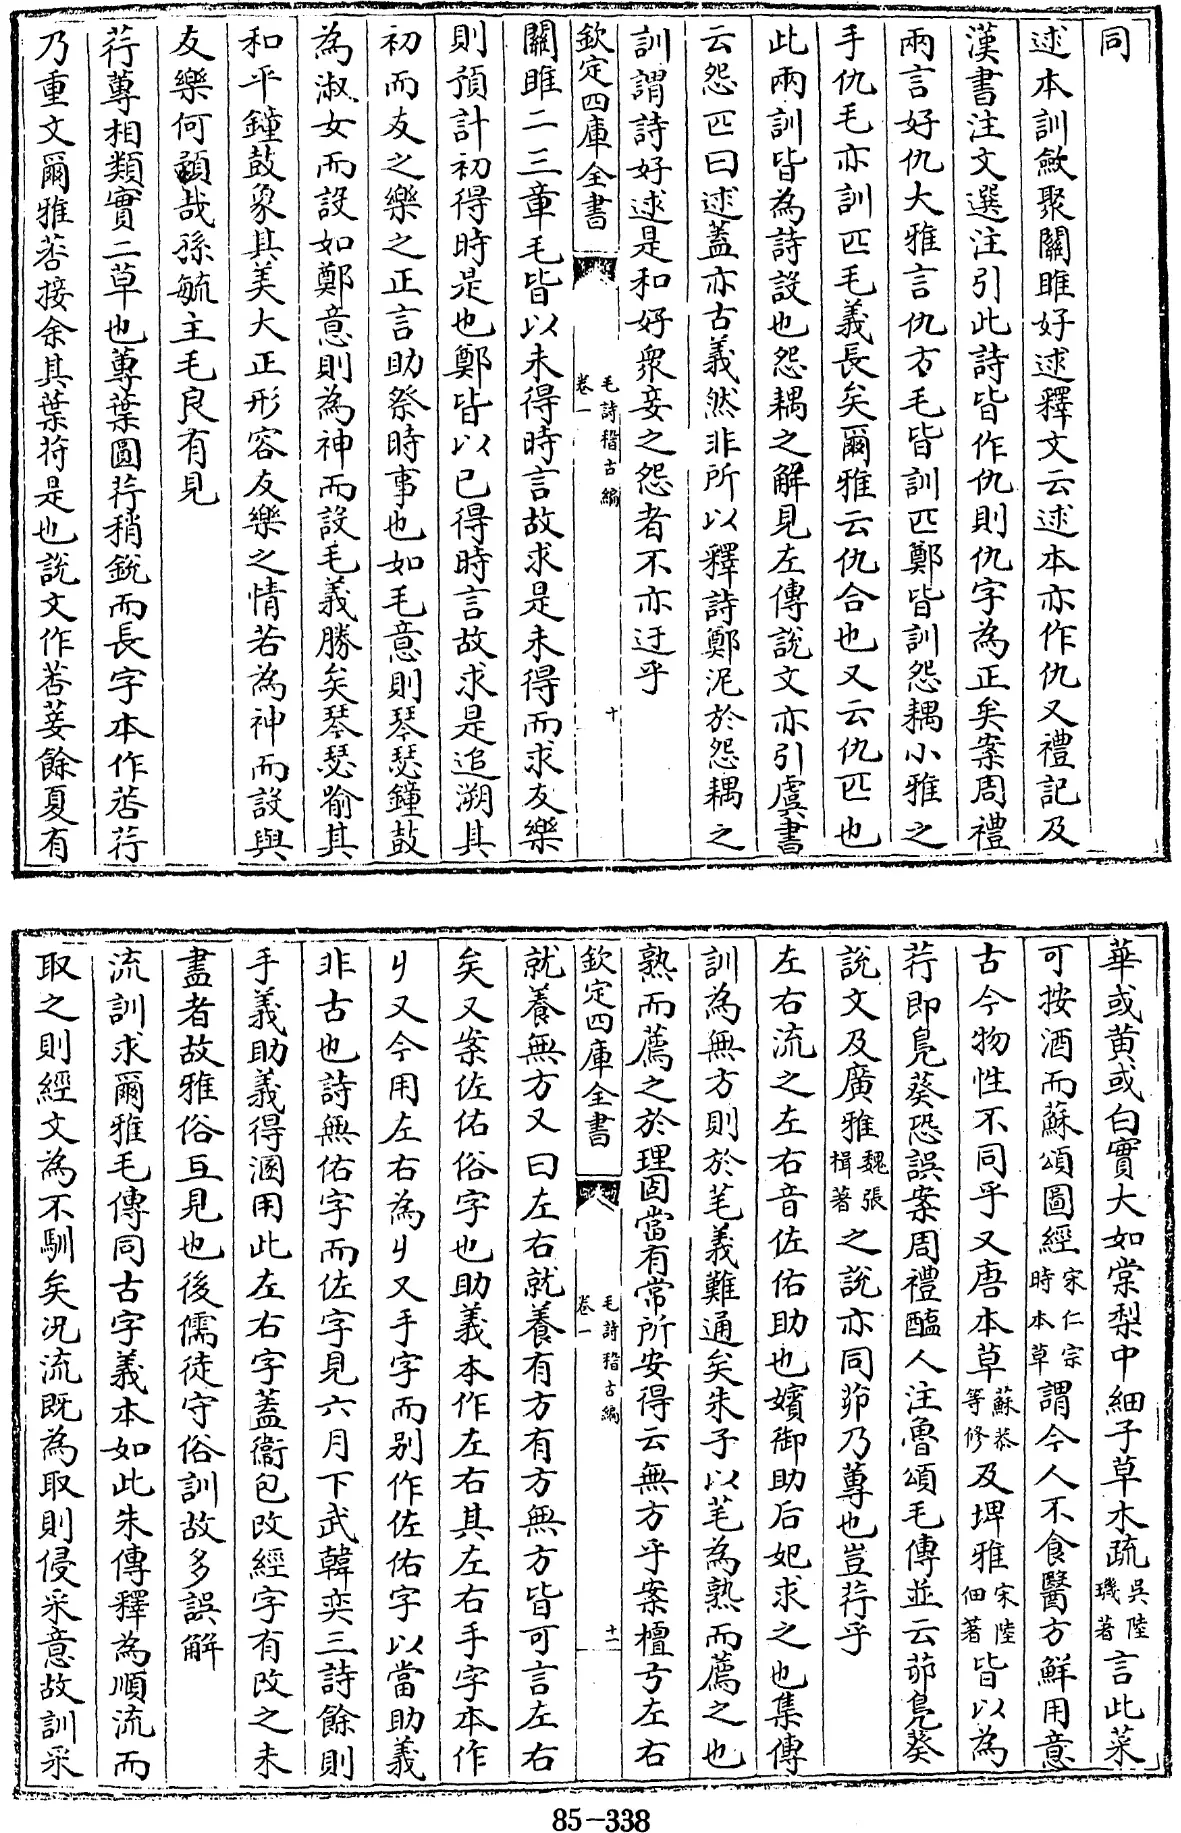 同
逑本訓斂聚關雎好逑釋文云逑本亦作仇又禮記及
漢書注文選注引此詩皆作仇則仇字為正矣案周禮
兩言好仇大雅言仇方毛皆訓匹鄭皆訓怨耦小雅之
手仇毛亦訓匹毛義長矣爾雅云仇合也又云仇匹也
此兩訓皆為詩設也怨耦之解見左傳說文亦引虞書
云怨匹曰逑蓋亦古義然非所以釋詩鄭泥於怨耦之
訓謂詩好逑是和好衆妾之怨者不亦迂乎
欽定四庫全書
毛詩稽古編
卷一
十
關雎二三章毛皆以未得時言故求是未得而求友樂
則預計初得時是也鄭皆以已得時言故求是追溯其
初而友之樂之正言助祭時事也如毛意則琴瑟鐘鼓
為淑女而設如鄭意則為神而設毛義勝矣琴瑟喻其
和平鐘鼓象其美大正形容友樂之情若為神而設與
友樂何預哉孫毓主毛良有見
荇蓴相類實二草也蓴葉圓荇稍銳而長字本作莕荇
乃重文爾雅莕接余其葉苻是也說文作莕菨餘夏有
華或黄或白實大如棠梨中細子草木疏吳陸璣著言此菜
可按酒而蘇頌圖經宋仁宗時本草謂今人不食醫方鮮用意
古今物性不同乎又唐本草蘇恭等修及埤雅宋陸佃著皆以為
荇即鳬葵恐誤案周禮醢人注魯頌毛傳並云茆鳬葵
說文及廣雅魏張楫著之說亦同茆乃蓴也豈荇乎
左右流之左右音佐佑助也嬪御助后妃求之也集傳
訓為無方則於芼義難通矣朱子以芼為熟而薦之也
熟而薦之於理固當有常所安得云無方乎案檀弓左右
欽定四庫全書
毛詩稽古編
卷一
十一
就養無方又曰左右就養有方有方無方皆可言左右
矣又案佐佑俗字也助義本作左右其左右手字本作
𠂇又今用左右為𠂇又手字而别作佐佑字以當助義
非古也詩無佑字而佐字見六月下武韓奕三詩餘則
手義助義得溷用此左右字蓋衞包改經字有改之未
盡者故雅俗互見也後儒徒守俗訓故多誤解
流訓求爾雅毛傳同古字義本如此朱傳釋為順流而
取之則經文為不馴矣况流既為取則侵采意故訓采
85-338